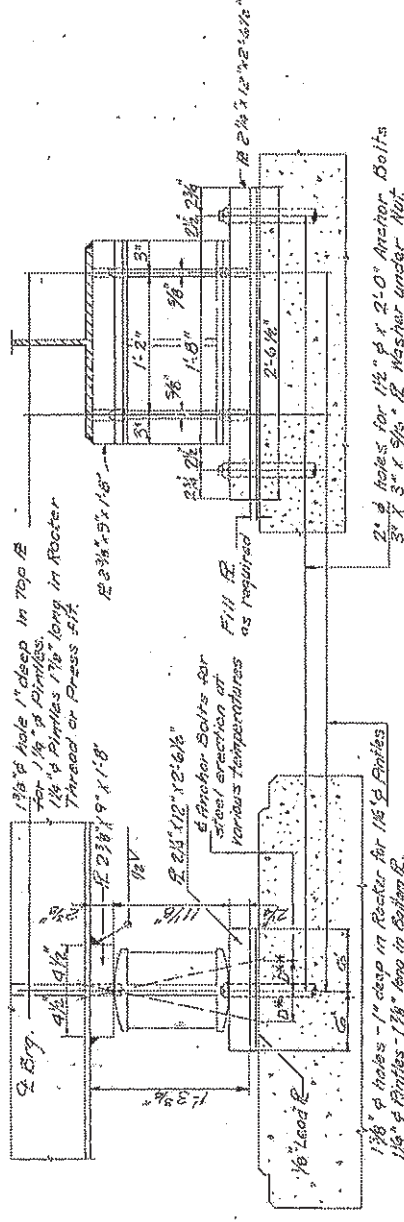 1 3/8" ϕ hole 1" deep in Top ℞
for 1 1/4" ϕ Pintles.
1 1/4" ϕ Pintles 1 7/8" long in Rocker
Thread or Press fit.
℄ Brg.
4 1/2" 4 1/2"
℞ 2 3/8" x 9" x 1'-8"
1/2 V
11 1/8"
2 1/4"
1'-3 3/4"
℞ 2 1/4" x 12" x 2'-6 1/2"
℄ Anchor Bolts for
steel erection at
various temperatures
1/8" Lead ℞
6" 6"
1 3/8" ϕ holes - 1" deep in Rocker for 1 1/4" ϕ Pintles
1 1/4" ϕ Pintles - 1 7/8" long in Bottom ℞
℞ 2 3/8" x 9" x 1'-8"
3" 1'-2" 3"
5/8" 5/8"
1'-8"
2 3/4" 2 1/2" 2 1/2" 2 3/4"
Fill ℞
as required
2'-6 1/2"
℞ 2 1/4" x 12" x 2'-6 1/2"
2" ϕ holes for 1 1/2" ϕ x 2'-0" Anchor Bolts
3" x 3" x 5/16" ℞ Washer under Nut